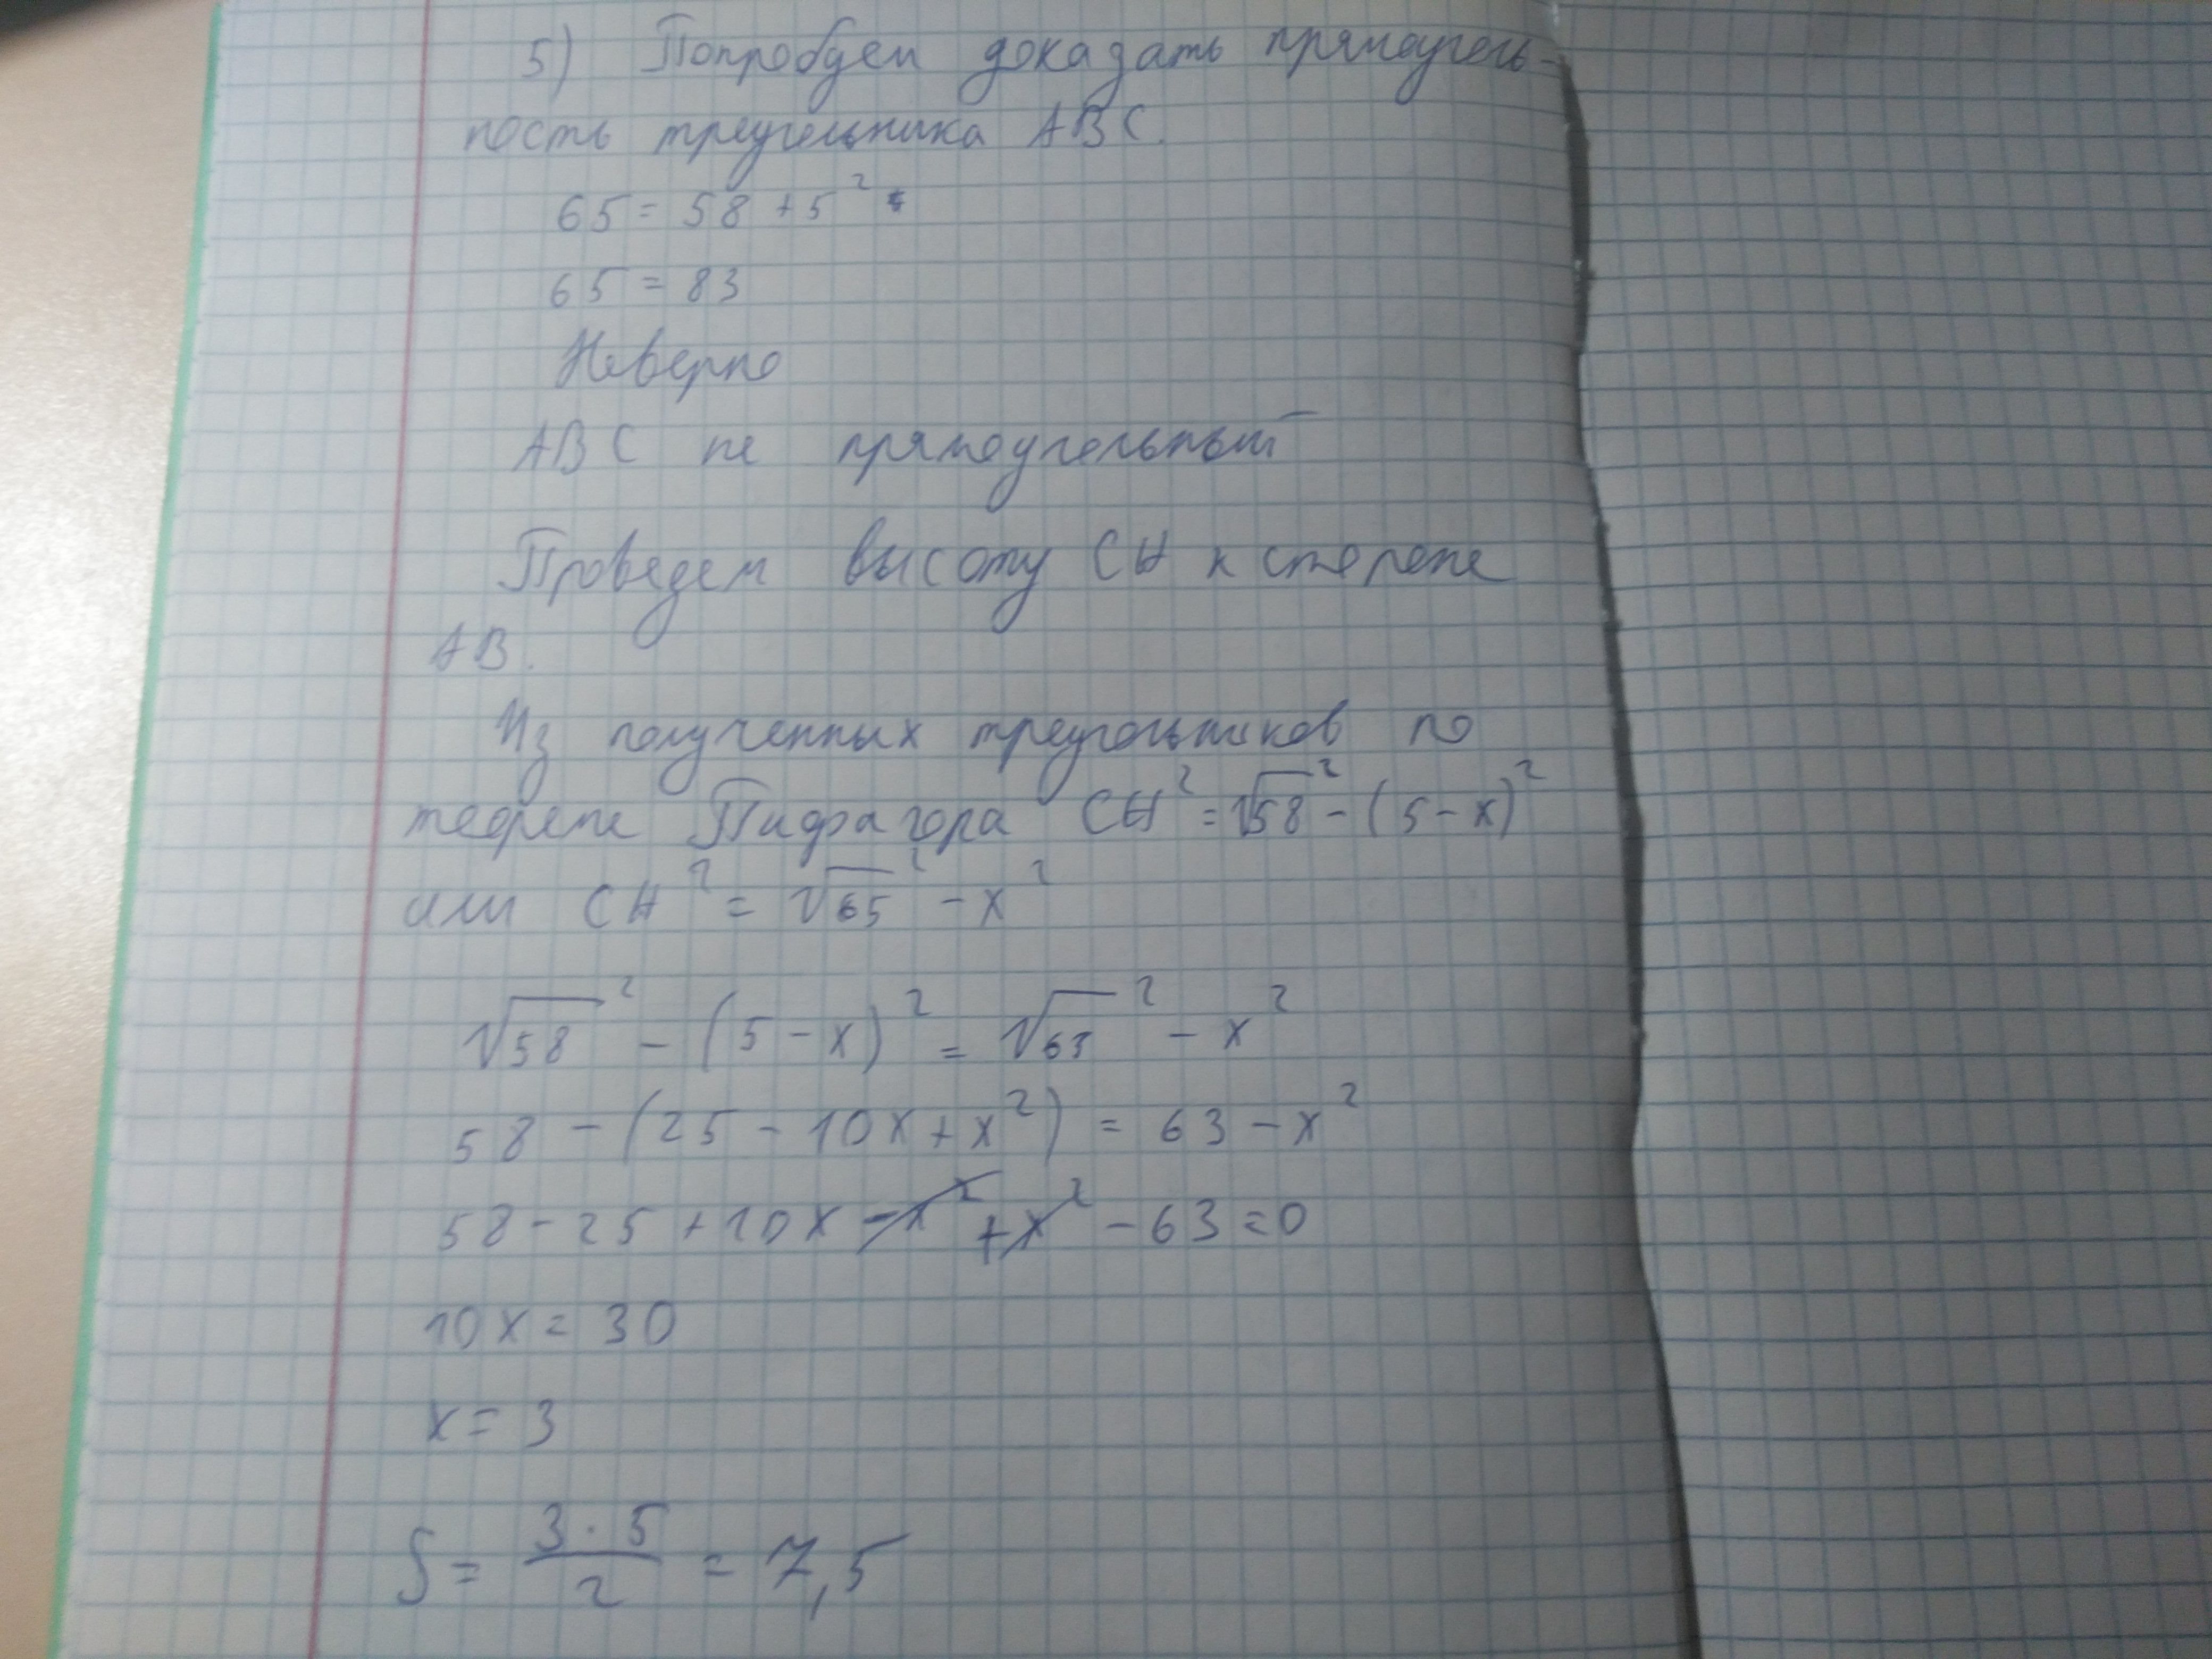 5) Попробуем доказать прямоуголь-
ность треугольника ABC.
65 = 58 + 5²
65 = 83
Неверно
ABC не прямоугольный
Проведем высоту CH к стороне
AB.
Из полученных треугольников по
теореме Пифагора CH² = √58² - (5 - x)²
или CH² = √65² - x²
√58² - (5 - x)² = √63² - x²
58 - (25 - 10x + x²) = 63 - x²
58 - 25 + 10x - x² + x² - 63 = 0
10x = 30
x = 3
S = (3 · 5)/2 = 7,5